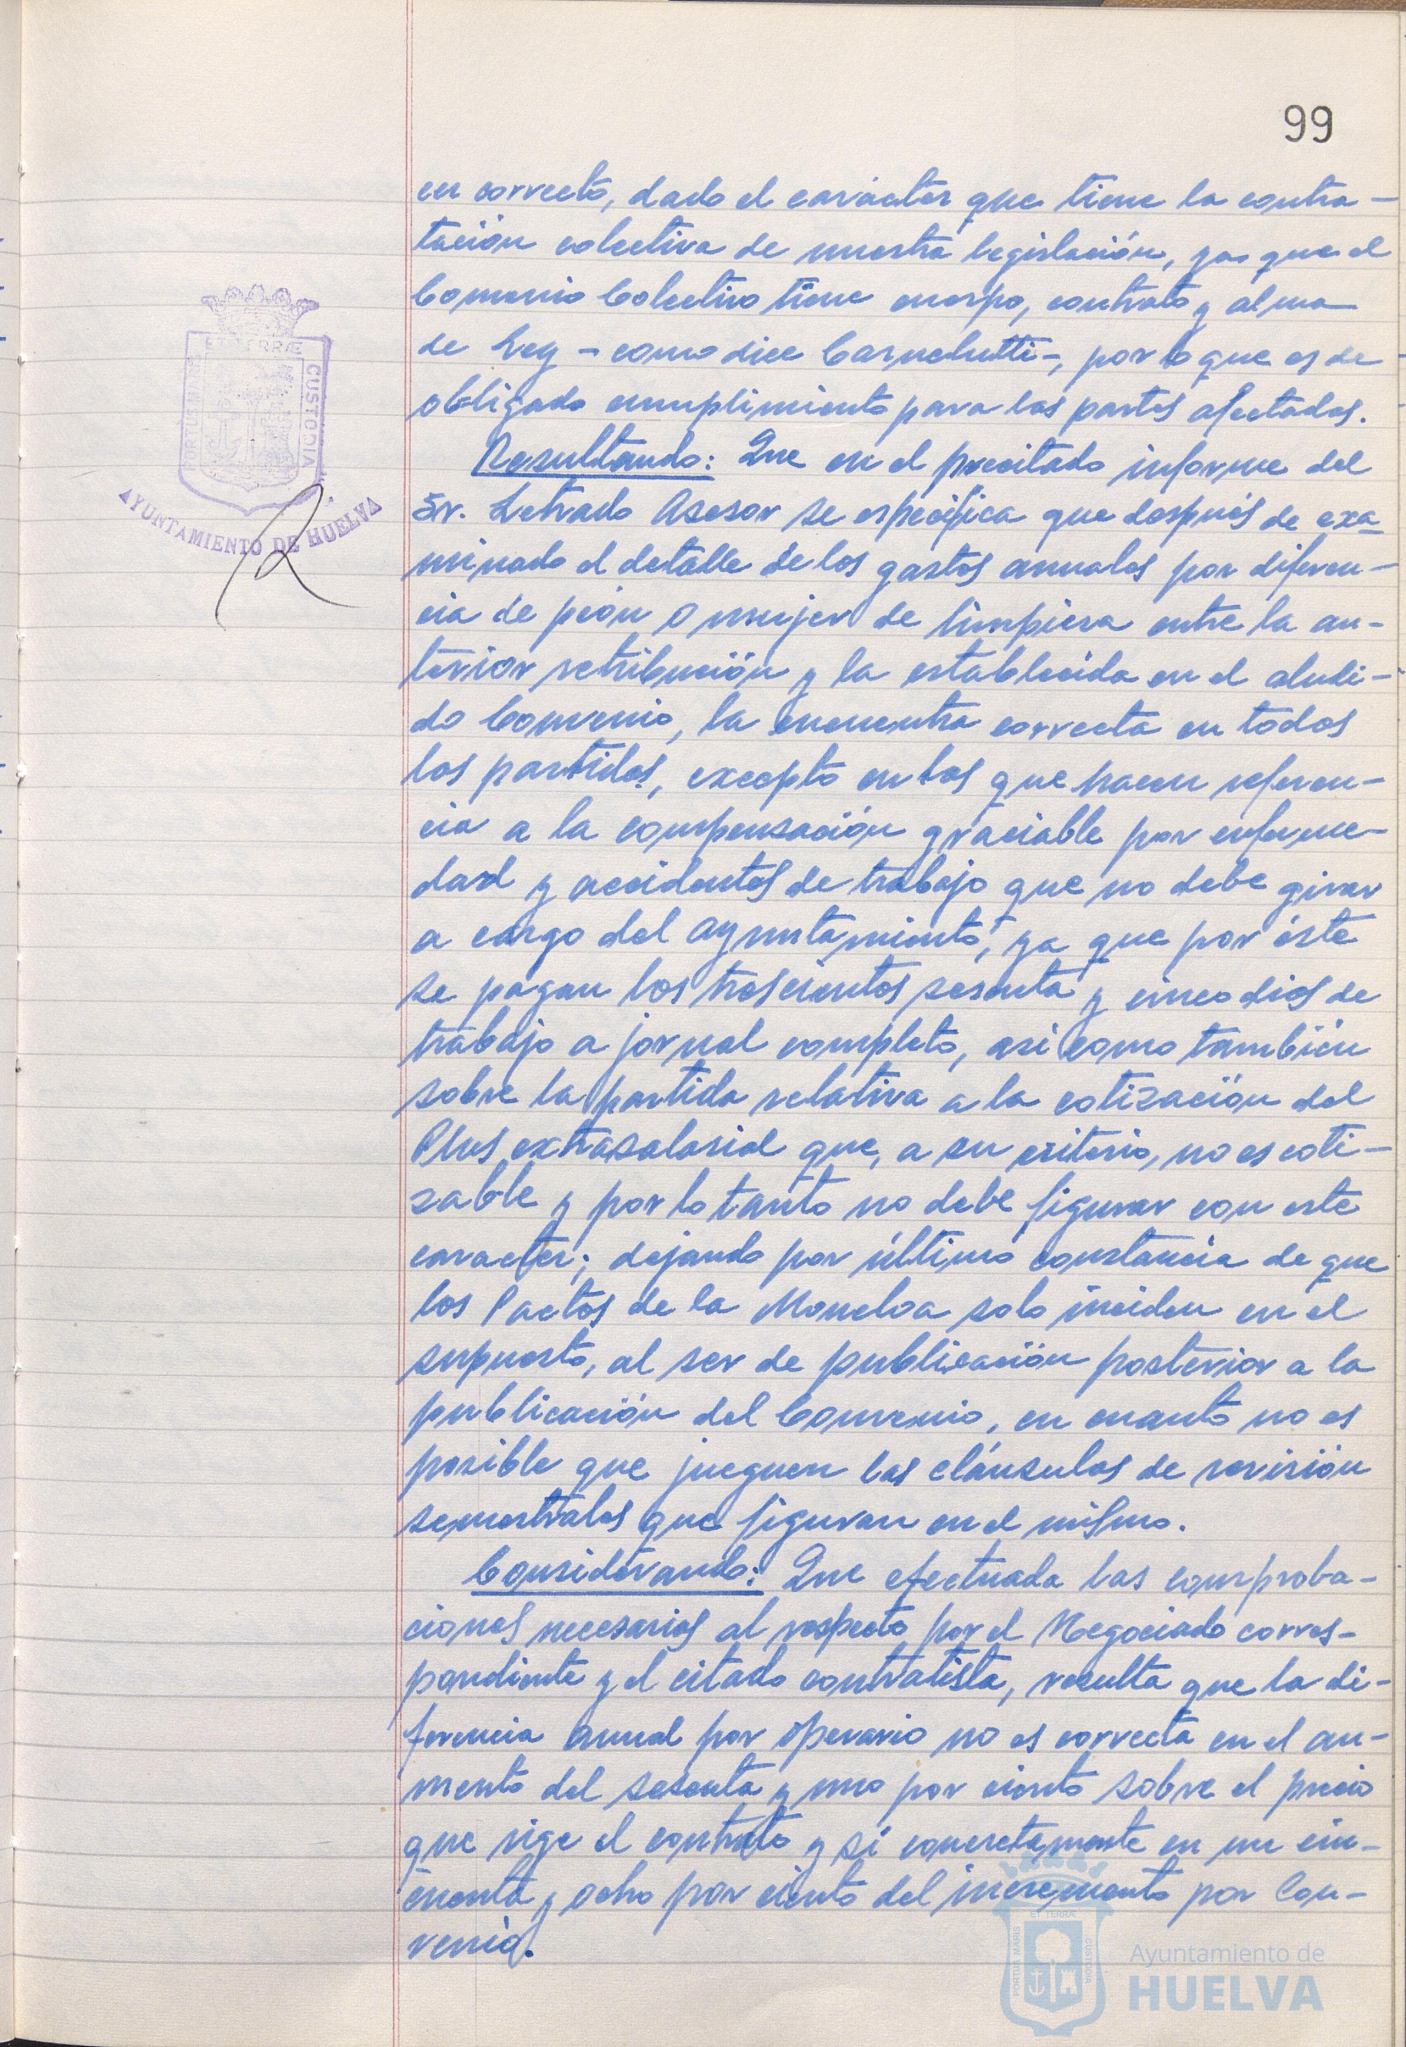 99
en correcto, dado el carácter que tiene la contra-
tación colectiva de nuestra legislación, ya que el
Convenio Colectivo tiene cuerpo, contrato y alma
de Ley - como dice Carnelutti -, por lo que es de
obligado cumplimiento para las partes afectadas.
Resultando: Que en el precitado informe del
Sr. Letrado Asesor se especifica que después de exa-
minado el detalle de los gastos anuales por diferen-
cia de peón o mujer de limpieza entre la an-
terior retribución y la establecida en el aludi-
do Convenio, la encuentra correcta en todas
las partidas, excepto en las que hacen referen-
cia a la compensación graciable por enferme-
dad y accidentes de trabajo que no debe girar
a cargo del Ayuntamiento, ya que por éste
se pagan los trescientos sesenta y cinco dias de
trabajo a jornal completo, asi como también
sobre la partida relativa a la cotización del
Plus extrasalarial que, a su criterio, no es coti-
zable y por lo tanto no debe figurar con este
caracter; dejando por último constancia de que
los Pactos de la Moncloa solo inciden en el
supuesto, al ser de publicación posterior a la
publicación del Convenio, en cuanto no es
posible que jueguen las cláusulas de revisión
semestrales que figuran en el mismo.
Considerando: Que efectuada las comproba-
ciones necesarias al respecto por el Negociado corres-
pondiente y el citado contratista, resulta que la di-
ferencia anual por operario no es correcta en el au-
mento del sesenta y uno por ciento sobre el precio
que rige el contrato y si concretamente en un cin-
cuenta y ocho por ciento del incremento por Con-
venio.
PORTUS MARIS ET TERRÆ CUSTODIA
AYUNTAMIENTO DE HUELVA
PORTUS MARIS ET TERRÆ CUSTODIA
Ayuntamiento de
HUELVA